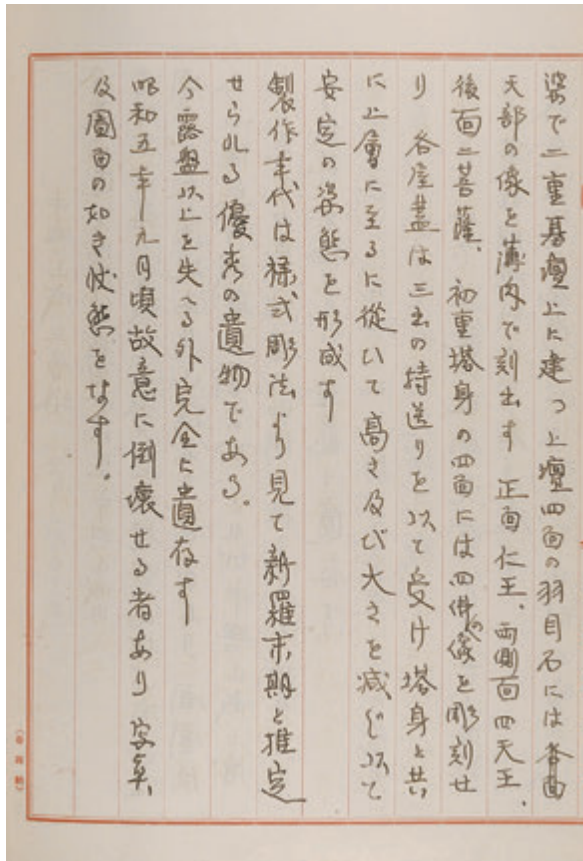 姿で二重基壇上に建つ上壇四面の羽目石には各面
天部の像を薄肉で刻出す 正面仁王、両側面四天王、
後面二菩薩、初重塔身の四面には四仏の像を彫刻せ
り 各屋蓋は三出の持送りを以て受け塔身と共
に上層に至るに従いて高さ及び大さを減じ以て
安定の姿態を形成す
製作年代は様式彫法より見て新羅末期と推定
せられる優秀の遺物である。
今露盤以上を失へる外完全に遺存す
昭和五年九月頃故意に倒壊せる者あり 写真、
及図面の如き状態をなす。